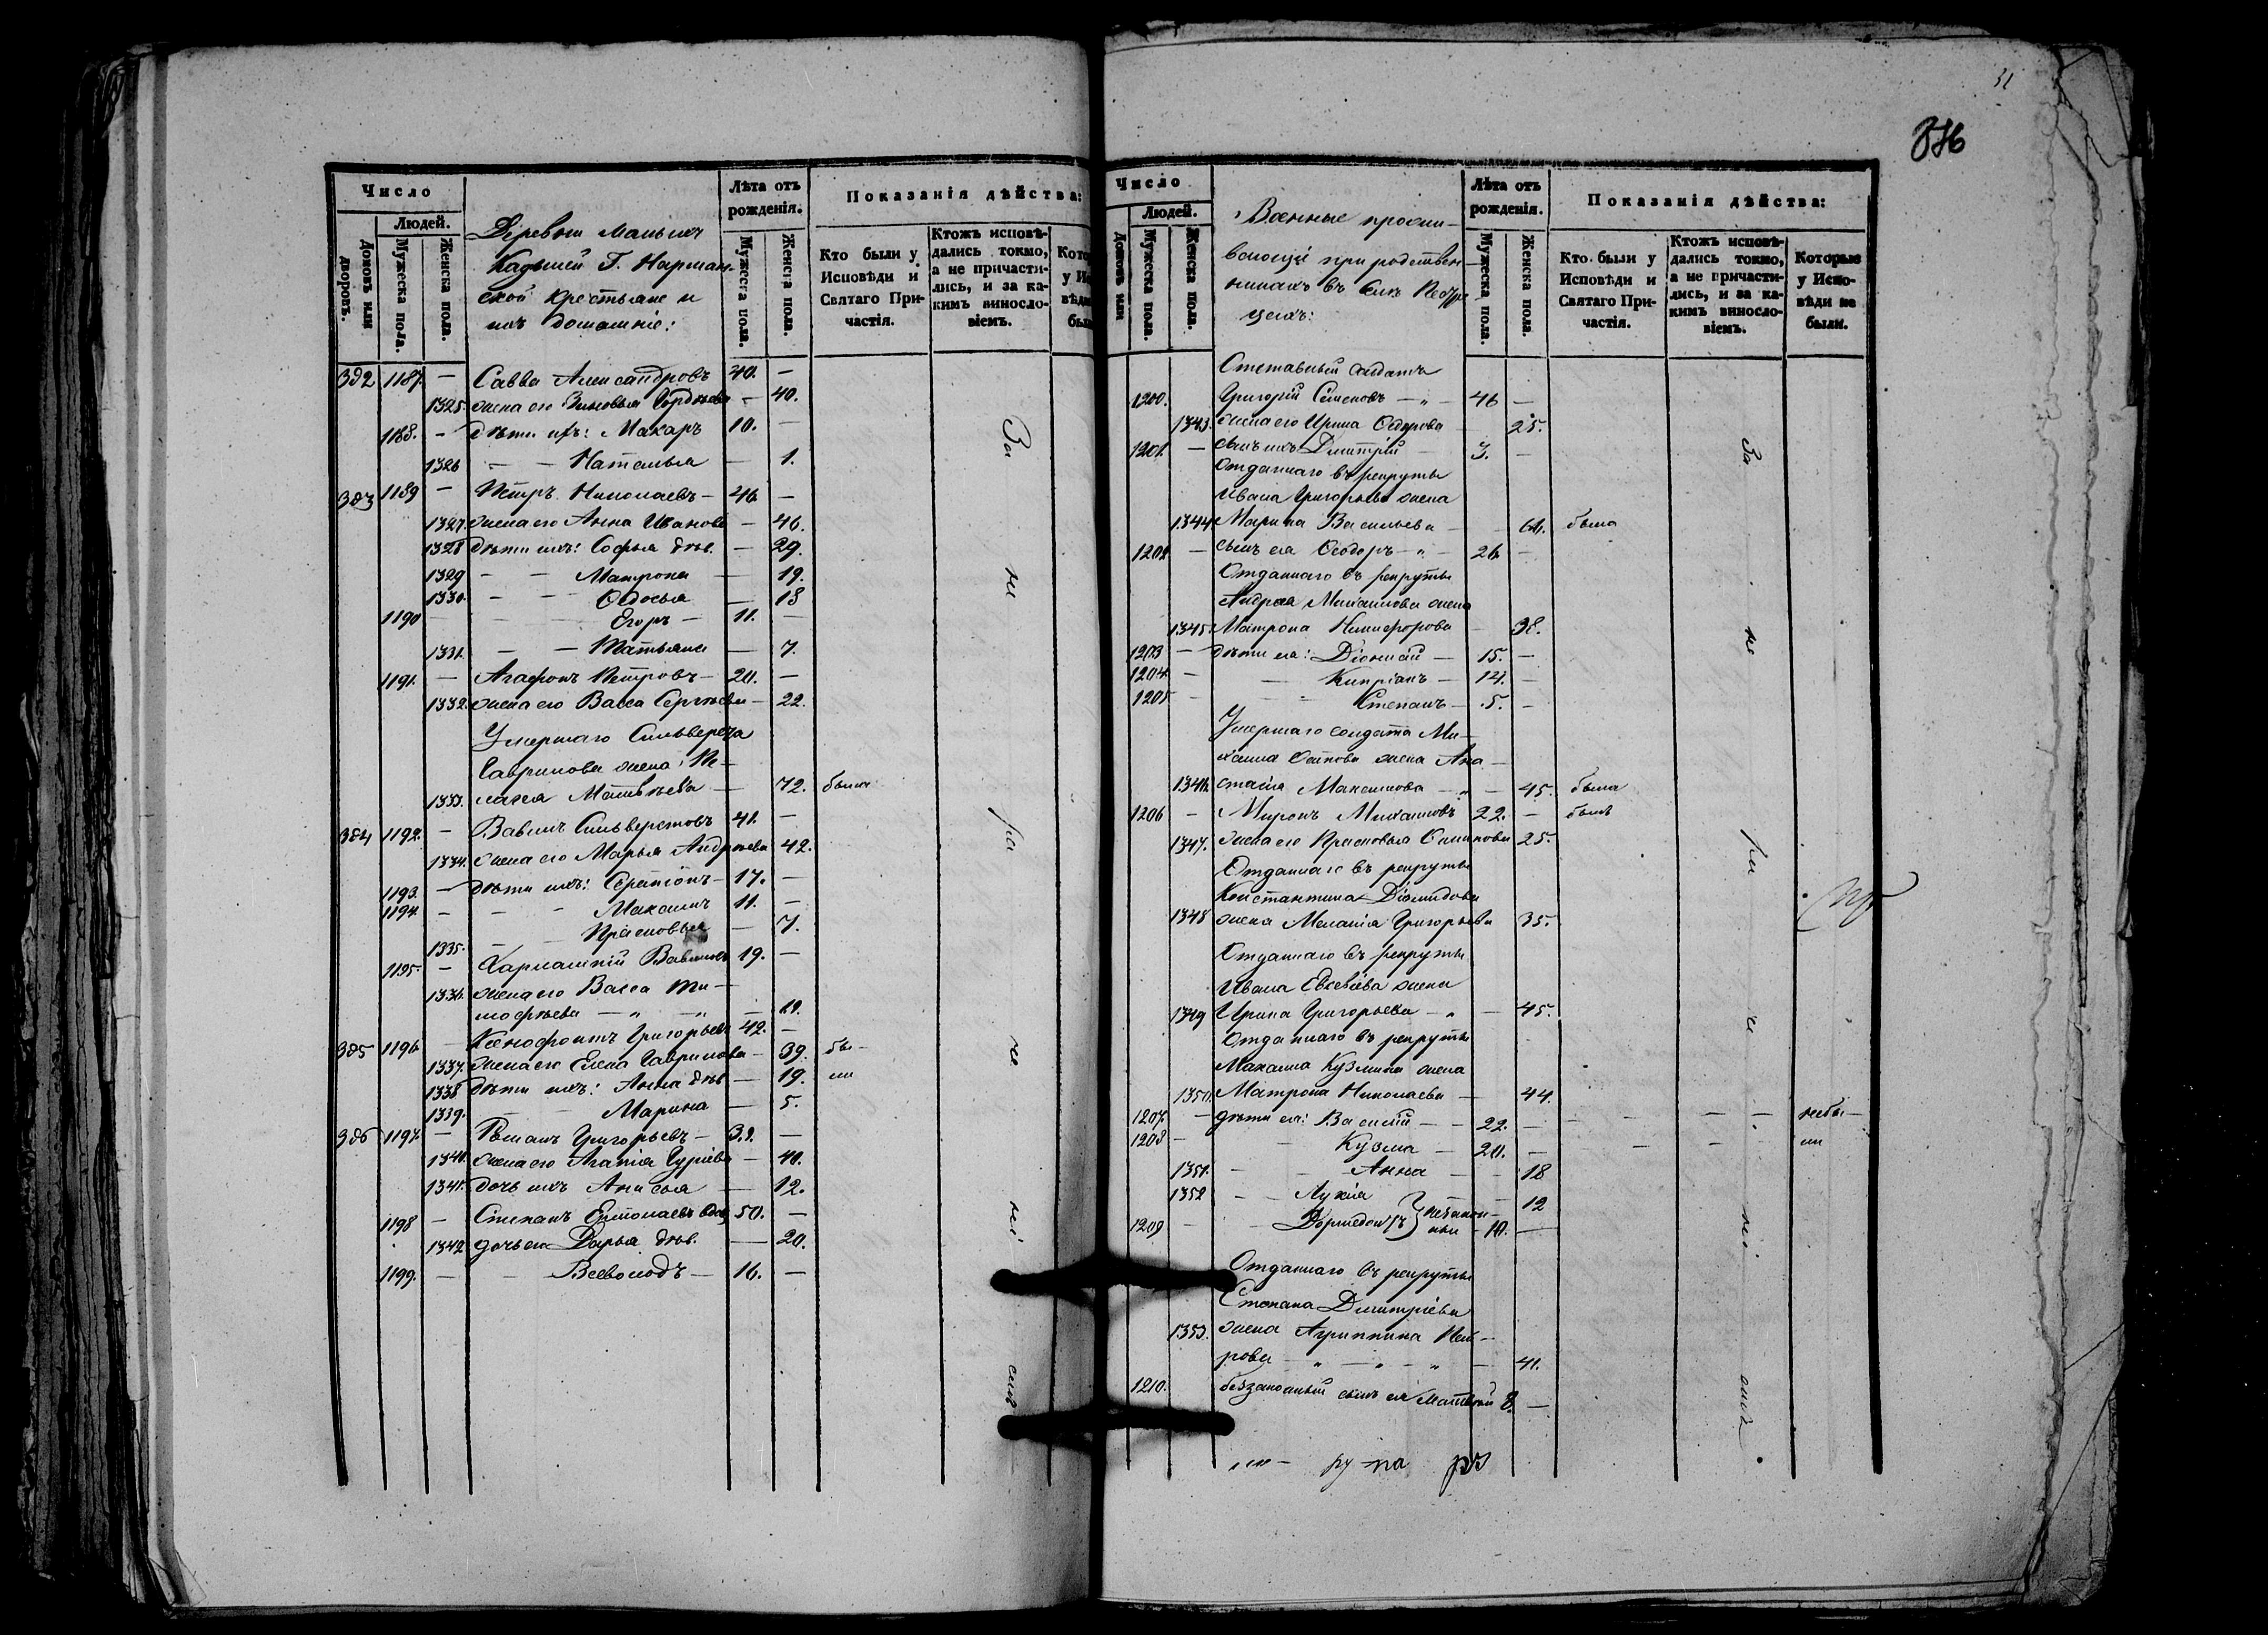 31
Число
Людей.
Домовъ или дворовъ.
Мужеска пола.
Женска пола.
Деревни Малыхъ
Кадышей Г. Нарман-
ской крестьяне и
ихъ домашніе:
Лѣта отъ рожденія.
Мужеска пола.
Женска пола.
Показанія дѣйства:
Кто были у Исповѣди и Святаго Причастія.
Ктожъ исповѣдались токмо, а не причастились, и за какимъ винословіемъ.
382 1187. — Савва Александровъ 40. —
1325. жена его Зиновья Гордѣева — 40.
1188. — дѣти ихъ: Макаръ 10. —
1326 — — Наталья — 1.
383 1189 — Петръ Николаевъ — 46 —
1327. жена его Анна Иванова — 46.
1328 дѣти ихъ: Софья дѣв. — 29.
1329 — — Матрона — 19.
1330. — — Ѳедосья — 13
1190 — — Егоръ — 11. —
1331. — — Татьяна — 7.
1191. — Агафонъ Петровъ — 20. —
1332. жена его Васса Сергѣева — 22.
Умершаго Сильверста
Гаврилова жена Пе-
1333. лагея Матвѣева — 72. была
384 1192. — Вавилъ Сильверстовъ 41. —
1334. жена его Марья Андреева 42.
1193. — дѣти ихъ: Серапіонъ — 17. —
1194. — — Максимъ 11. —
1335. — Прасковья — 7.
1195. — Харлампій Вавиловъ 19. —
1336. жена его Васса Ти-
мофѣева — „ — „ — 21.
385 1196 — Ксенофонтъ Григорьевъ 42. —
1337. жена его Елена Гаврилова — 39. бы-
1338 дѣти ихъ: Анна дѣв — 19. ли
1339. — — Марина — 5.
386 1197. — Романъ Григорьевъ — 39. —
1340. жена его Агапія Гуріева — 40.
1341. дочь ихъ Анисья — 12.
1198 — Степанъ Ермолаевъ вдов 50. —
1342 дочь его Дарья дѣв. — 20.
1199. — — Всеволодъ — 16. —
За не ра че ні емъ
Число
Людей.
Домовъ или
Мужеска пола.
Женска пола.
Военные прожи-
вающіе при родствен-
никахъ въ селѣ
Лѣта отъ рожденія.
Мужеска пола.
Женска пола.
Показанія дѣйства:
Кто были у Исповѣди и Святаго Причастія.
Ктожъ исповѣдались токмо, а не причастились, и за какимъ винословіемъ.
Которые у Исповѣди не были.
Отставный солдатъ
1200. Григорій Семеновъ — „ — 46 —
1343. жена его Ирина Ѳедорова — 25.
1201. — сынъ ихъ Дмитрій — 3. —
Отданнаго въ рекруты
Ивана Григорьева жена
1344 Марина Васильева — 64. была
1202 — сынъ ея Ѳеодоръ — „ — 26 —
Отданнаго въ рекруты
Андрея Михаилова жена
1345. Матрона Никифорова — 38.
1203 — дѣти ея: Діонисій — 15. —
1204. — — Кипріанъ — 14. —
1205 — — Степанъ — 5. —
Умершаго солдата Ми-
хаила Осипова жена Ана-
1346. стасія Максимова — „ — 45. была
1206 — Миронъ Михаиловъ 22. — былъ
1347. жена его Прасковья 25.
Отданнаго въ рекруты
Константина Діомидова
1348 жена Меланія Григорьева 35.
Отданнаго въ рекруты
Ивана Евсевіева жена
1349 Ирина Григорьева — „ — 45.
Отданнаго въ рекруты
Максима Кузмина жена
1350. Матрона Николаева — 44.
1207. — дѣти ея: Василій — 22. — — — — небы-
1208 — — Кузма — 20. — — — ли
1351. — — Анна — 18
1352 — — Лукія 12
1209 — — Дормедонтъ } незакон- ные — 10. —
Отданнаго въ рекруты
Степана Дмитріева
1353. жена Агриппина Пет-
рова — „ — „ — „ — 41.
1210. беззаконный сынъ ея Матвѣй 8. —
За не ра че ні емъ